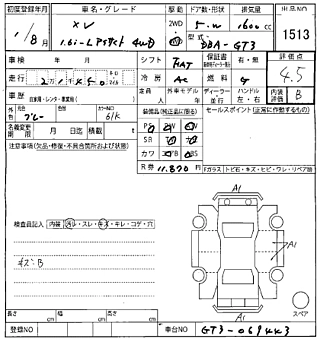 初度登録年月 車名・グレード 駆動 ドア数・形状 排気量 出品NO
1/8月 XV 2WD 5・W 1600cc 1513
1.6i-L アイサイト 4WD 4WD DBA-GT3
車検 年 月 シフト FAT 保証書 評価点
走行 冷房 AC 燃料 G 4.5
自家用・レンタ・事業用 外車モデル 年 ディーラー 並行 ハンドル 左・右 内装評価 B
外色 ブルー カラーNO 61K 装備品(純正品に限る) セールスポイント(正常に動作するもの)
名義変更期限 月 日迄 積載 t PS PW
注意事項(欠品・修復・不具合箇所および状態) SR
カワ ABS
R券 11.870円 Fガラス
検査員記入 内装 スレ・キズ・キレ・コゲ・穴
キズB
A1
A1
A1
スペア
長さ cm 幅 cm 高さ cm
登録NO 車台NO GT3-069443